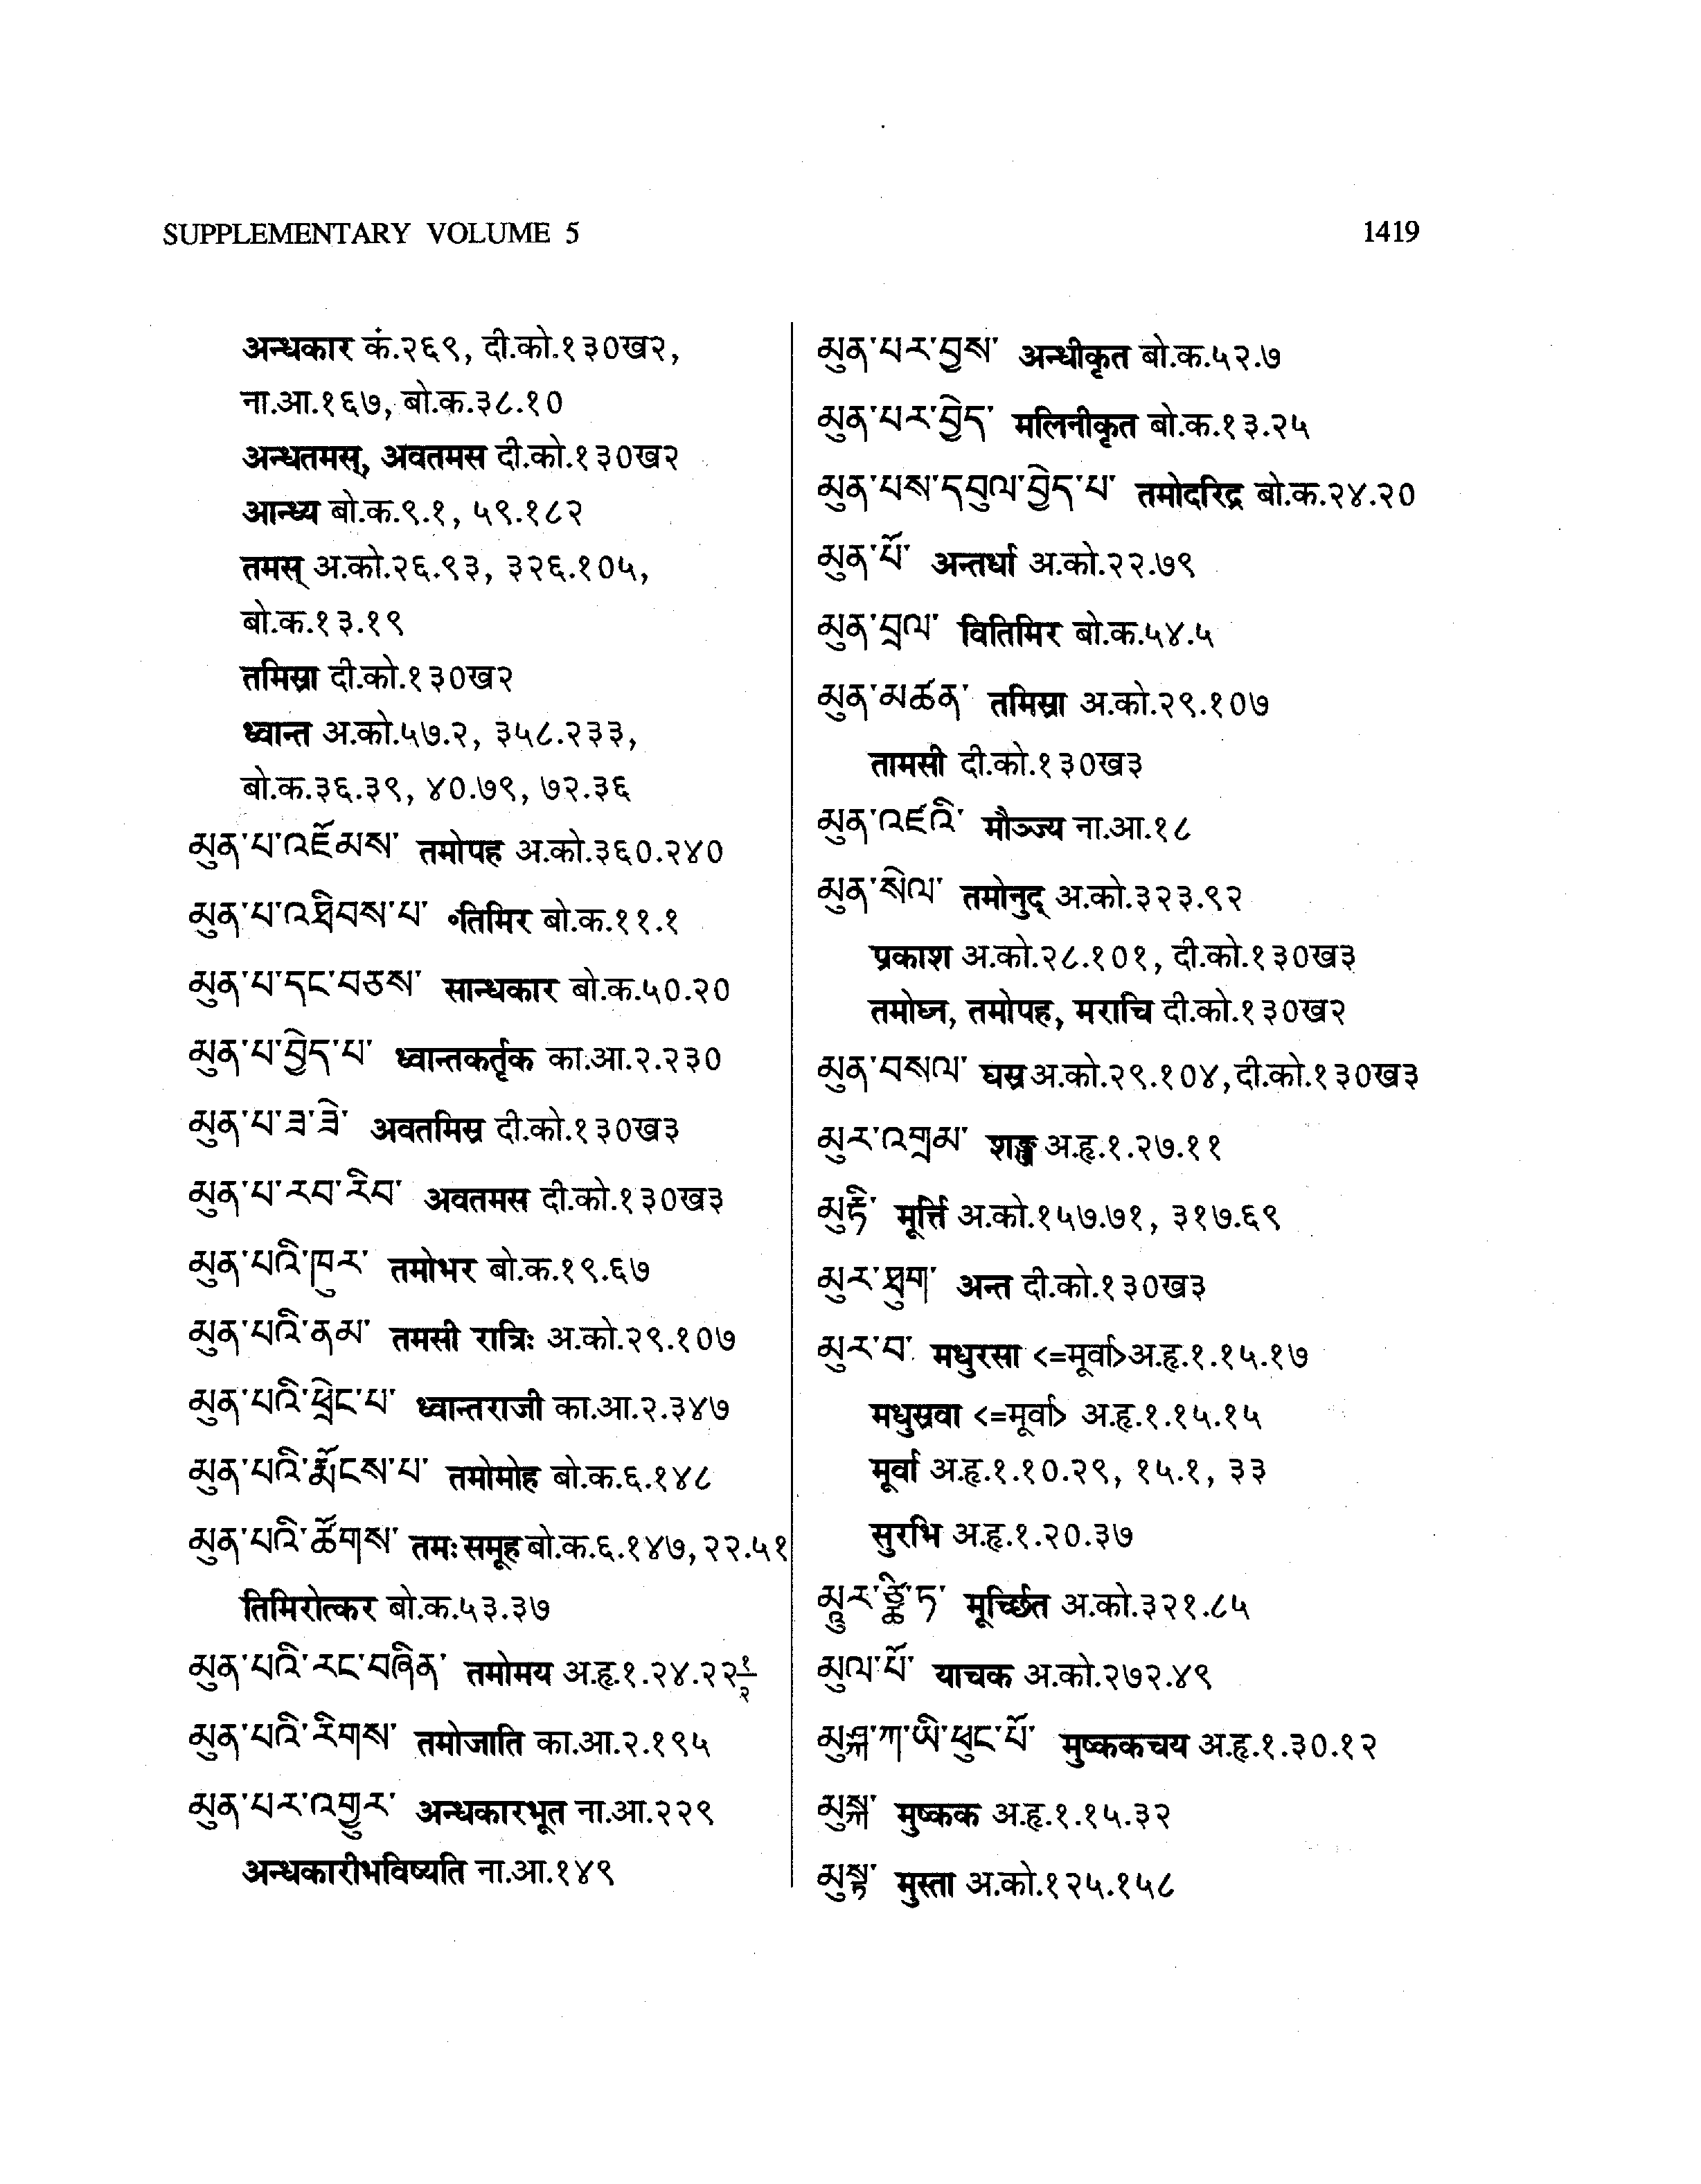 SUPPLEMENTARY VOLUME 5
1419
अन्धकार कं.२६९, दी.को.१३०ख२,
ना.आ.१६७, बो.क.३८.१०
अन्धतमस्, अवतमस दी.को.१३०ख२
आन्ध्य बो.क.९.१, ५९.१८२
तमस् अ.को.२६.९३, ३२६.१०५,
बो.क.१३.१९
तमिस्रा दी.को.१३०ख२
ध्वान्त अ.को.५७.२, ३५८.२३३,
बो.क.३६.३९, ४०.७९, ७२.३६
མུན་པ་འཇོམས་ तमोपह अ.को.३६०.२४०
མུན་པ་འཐིབས་པ་ ॰तिमिर बो.क.११.१
མུན་པ་དང་བཅས་ सान्धकार बो.क.५०.२०
མུན་པ་བྱེད་པ་ ध्वान्तकर्तृक का.आ.२.२३०
མུན་པ་ཟ་ཟེ་ अवतमिस्र दी.को.१३०ख३
མུན་པ་རབ་རིབ་ अवतमस दी.को.१३०ख३
མུན་པའི་ཁུར་ तमोभर बो.क.१९.६७
མུན་པའི་ནམ་ तमसी रात्रिः अ.को.२९.१०७
མུན་པའི་ཕྲེང་པ་ ध्वान्तराजी का.आ.२.३४७
མུན་པའི་རྨོངས་པ་ तमोमोह बो.क.६.१४८
མུན་པའི་ཚོགས་ तमःसमूह बो.क.६.१४७, २२.५१
तिमिरोत्कर बो.क.५३.३७
མུན་པའི་རང་བཞིན་ तमोमय अ.हृ.१.२४.२२१/२
མུན་པའི་རིགས་ तमोजाति का.आ.२.१९५
མུན་པར་འགྱུར་ अन्धकारभूत ना.आ.२२९
अन्धकारीभविष्यति ना.आ.१४९
མུན་པར་བྱས་ अन्धीकृत बो.क.५२.७
མུན་པར་བྱེད་ मलिनीकृत बो.क.१३.२५
མུན་པས་དབུལ་བྱེད་པ་ तमोदरिद्र बो.क.२४.२०
མུན་པོ་ अन्तर्धा अ.को.२२.७९
མུན་བྲལ་ वितिमिर बो.क.५४.५
མུན་མཚན་ तमिस्रा अ.को.२९.१०७
तामसी दी.को.१३०ख३
མུན་འཛའི་ मौञ्ज्य ना.आ.१८
མུན་སེལ་ तमोनुद् अ.को.३२३.९२
प्रकाश अ.को.२८.१०१, दी.को.१३०ख३
तमोघ्न, तमोपह, मराचि दी.को.१३०ख२
མུན་བསལ་ घस्र अ.को.२९.१०४, दी.को.१३०ख३
མུར་འགྲམ་ शङ्ख अ.हृ.१.२७.११
མུརྟི་ मूर्त्ति अ.को.१५७.७१, ३१७.६९
མུར་ཐུག་ अन्त दी.को.१३०ख३
མུར་བ་ मधुरसा <=मूर्वा>अ.हृ.१.१५.१७
मधुस्रवा <=मूर्वा> अ.हृ.१.१५.१५
मूर्वा अ.हृ.१.१०.२९, १५.१, ३३
सुरभि अ.हृ.१.२०.३७
मूर्च्छित अ.को.३२१.८५
མུལ་པོ་ याचक अ.को.२७२.४९
མུཥྐ་ཀ་ཡི་ཕུང་པོ་ मुष्ककचय अ.हृ.१.३०.१२
མུསྐ་ मुष्कक अ.हृ.१.१५.३२
མུསྟ་ मुस्ता अ.को.१२५.१५८